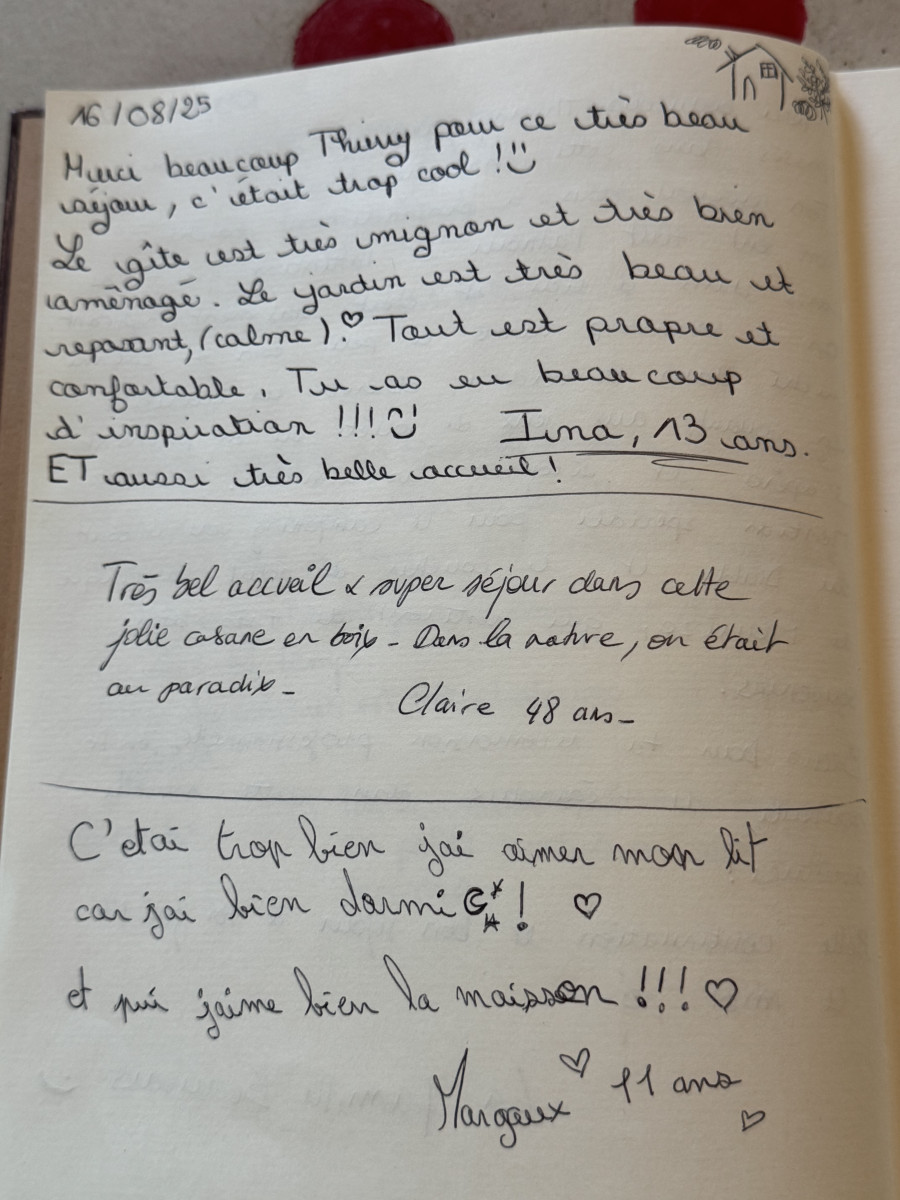 16/08/25
Merci beaucoup Thierry pour ce très beau
séjour, c'était trop cool !
Le gîte est très mignon et très bien
aménagé. Le jardin est très beau et
reposant, (calme). Tout est propre et
confortable. Tu as eu beaucoup
d'inspiration !!!
Inna, 13 ans.
ET aussi très belle accueil !
Très bel accueil & super séjour dans cette
jolie casane en bois - Dans la nature, on était
au paradis -
Claire 48 ans -
C'etai trop bien jai aimer mon lit
car jai bien dormi ! ♡
et pui j'aime bien la maisson !!! ♡
Margaux ♡ 11 ans
♡